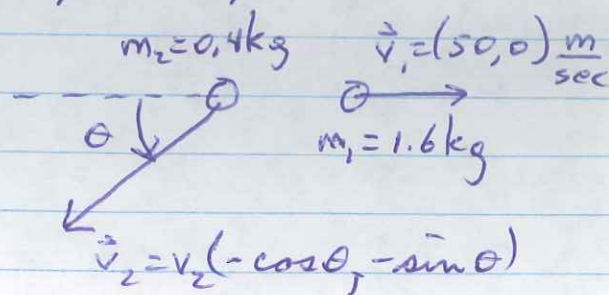 m₂=0,4kg
v⃗₁=(50,0) m/sec
θ
m₁=1.6kg
v⃗₂=v₂(-cosθ, -sinθ)